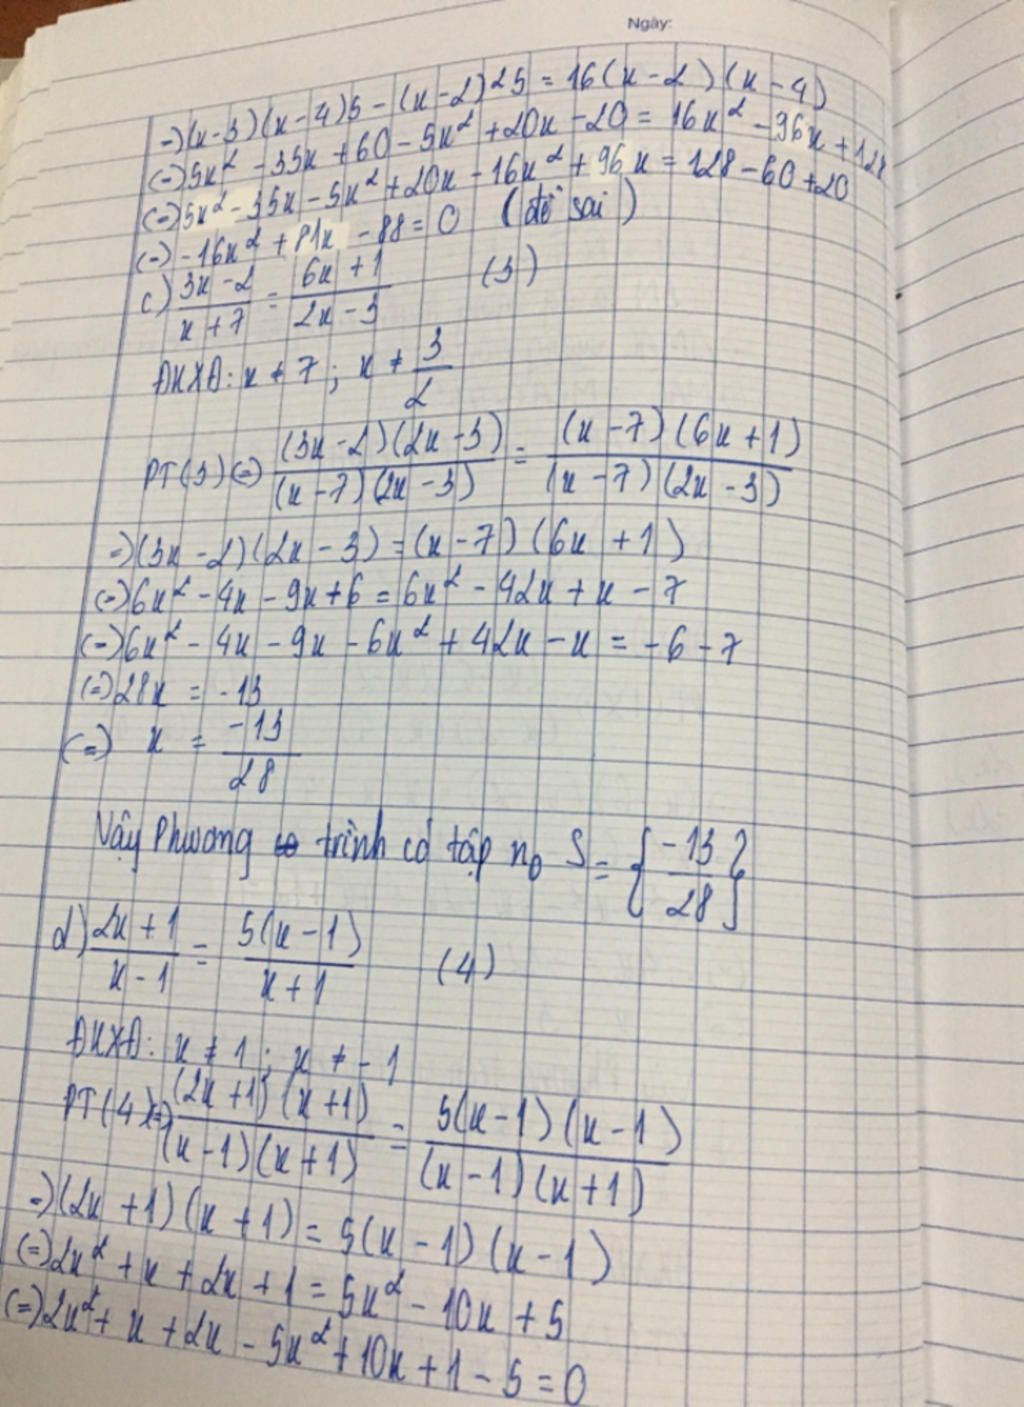 Ngày:
=)(x-3)(x-4)5-(x-2)²5=16(x-2)(x-4)
(=)5x²-35x+60-5x²+20x-20=16x²-96x+128
(=)5x²-35x-5x²+20x-16x²+96x=128-60+20
(=)-16x²+81x-88=0 (đề sai)
c) (3x-2)/(x+7) = (6x+1)/(2x-3) (3)
ĐKXĐ: x≠7; x≠3/2
PT(3)(=) (3x-2)(2x-3)/(x-7)(2x-3) = (x-7)(6x+1)/(x-7)(2x-3)
=)(3x-2)(2x-3)=(x-7)(6x+1)
(=)6x²-4x-9x+6=6x²-42x+x-7
(=)6x²-4x-9x-6x²+42x-x=-6-7
(=)28x=-13
(=) x = -13/28
Vậy Phương trình có tập n₀ S={-13/28}
d) (2x+1)/(x-1) = 5(x-1)/(x+1) (4)
ĐKXĐ: x≠1; x≠-1
PT(4)(=) (2x+1)(x+1)/(x-1)(x+1) = 5(x-1)(x-1)/(x-1)(x+1)
=)(2x+1)(x+1)=5(x-1)(x-1)
(=)2x²+x+2x+1=5x²-10x+5
(=)2x²+x+2x-5x²+10x+1-5=0